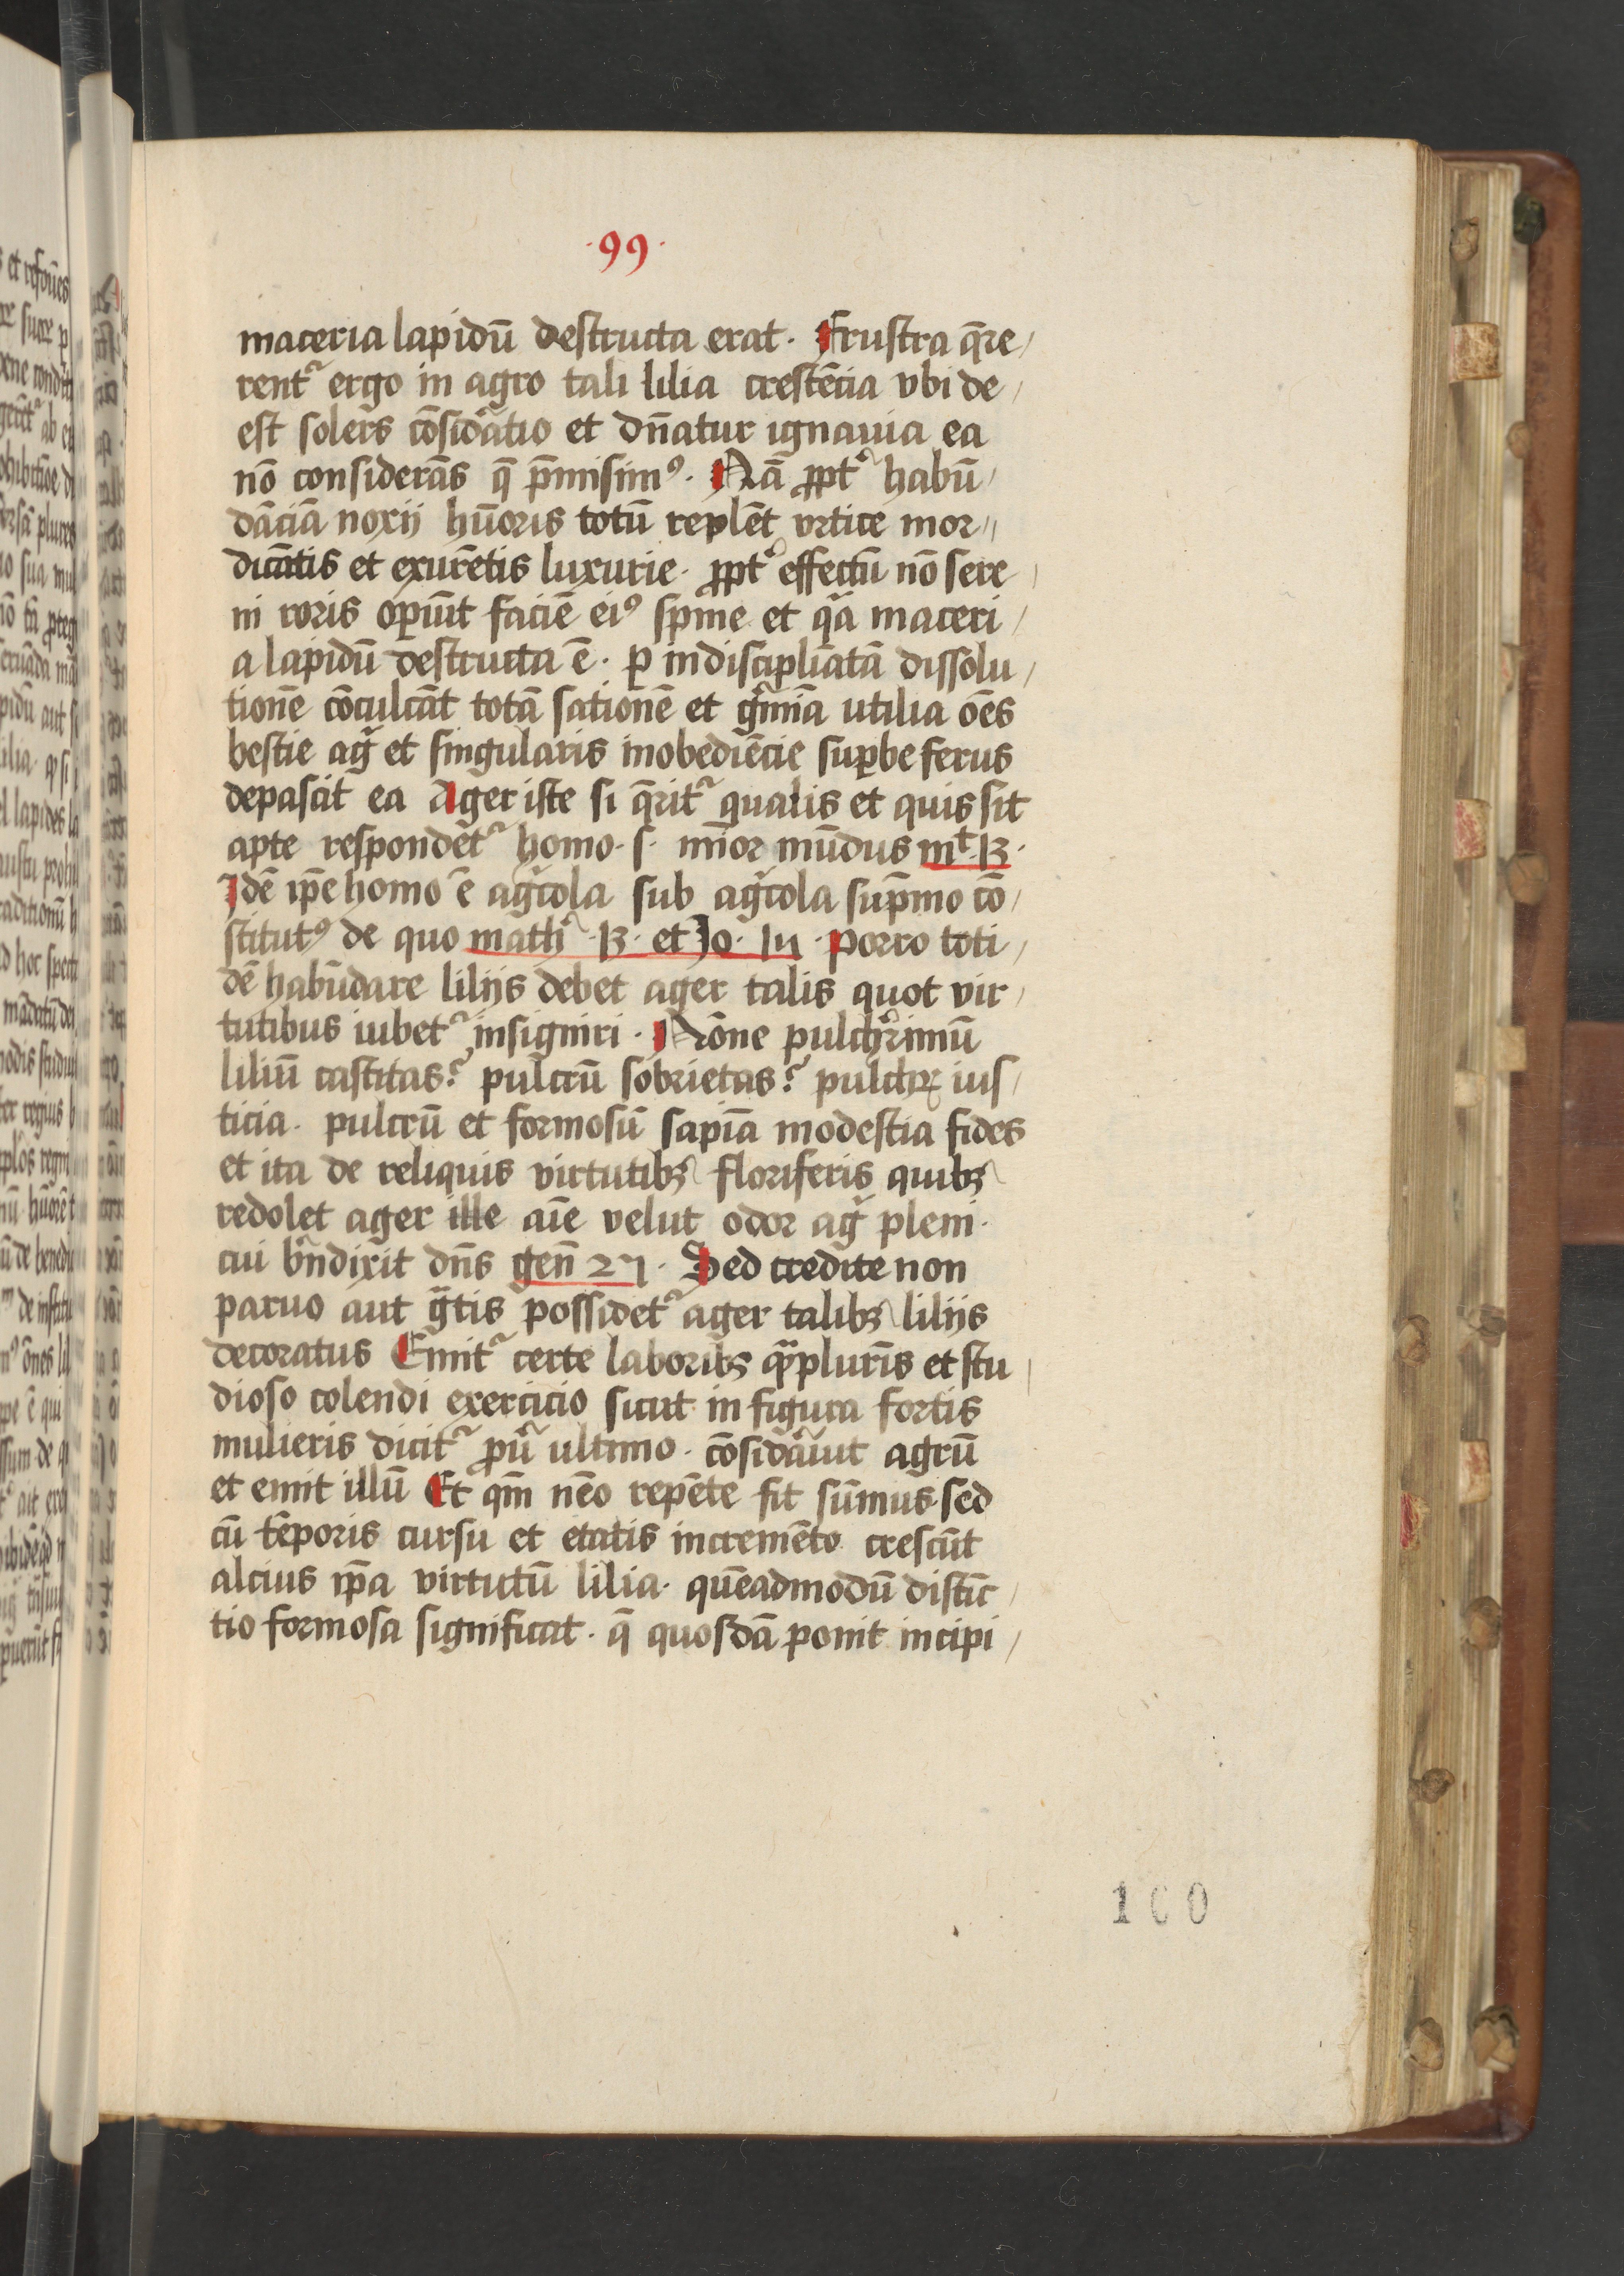 ·99·
maceria lapidū destructa erat. Frustra q̄re/
rent᷑ ergo in agro tali lilia crescēcia vbi de/
est solers cōsid̾atio et dn̄atur ignauia ea
nō considerās q̄ p̄misimꝰ. Nā ꝓpt᷑ habū/
dāciā noxij hūoris totū replēt vrtice mor//
dicātis et exurētis luxurie. ꝓpt᷑ effectū nō sere/
ni roris oꝑiūt faciē eiꝰ spine et qa maceri/
a lapidū destructa ē. ꝑ indiscipliatā dissolu/
tionē cōculcāt totā sationē et gͥmīa utilia oēs
bestie agͥ et singularis inobediēcie suꝑbe ferus
depascit ea Ager iste si q̄rit᷑ qualis et quis sit
apte respondet᷑ homo. s. mīor mūdus mt. 13.
Idē ip̄e homo ē agͥcola sub agͥcola sup̄mo cō/
stitutꝰ de quo math᷑. 13. et Jo. 14. Porro toti/
dē habūdare lilijs debet ager talis quot vir/
tutibus iubet᷑ insigniri. Nōne pulch̾rimū
liliū castitas? pulcrū sobrietas? pulchrꝝ ius/
ticia. pulcrū et formosū sapīa modestia fides
et ita de reliquis virtutibꝫ floriferis quibꝫ
redolet ager ille aīe velut odor agͥ pleni.
cui bn̄dixit dn̄s gen̄ 27. Sed credite non
paruo aut gͣtis possidet᷑ ager talibꝫ lilijs
decoratus Emit᷑ certe laboribꝫ qͣpluris et stu/
dioso colendi exercicio sicut in figura fortis
mulieris dicit᷑ ꝓu᷑ ultimo. cōsid̾auit agrū
et emit illū Et qm̄ nēo repēte fit sūmus sed
cū tēporis cursu et etatis incremēto crescūt
alcius ip̄a virtutū lilia. quēadmodū distīc/
tio formosa significat. q̄ quosdā ponit incipi/
100